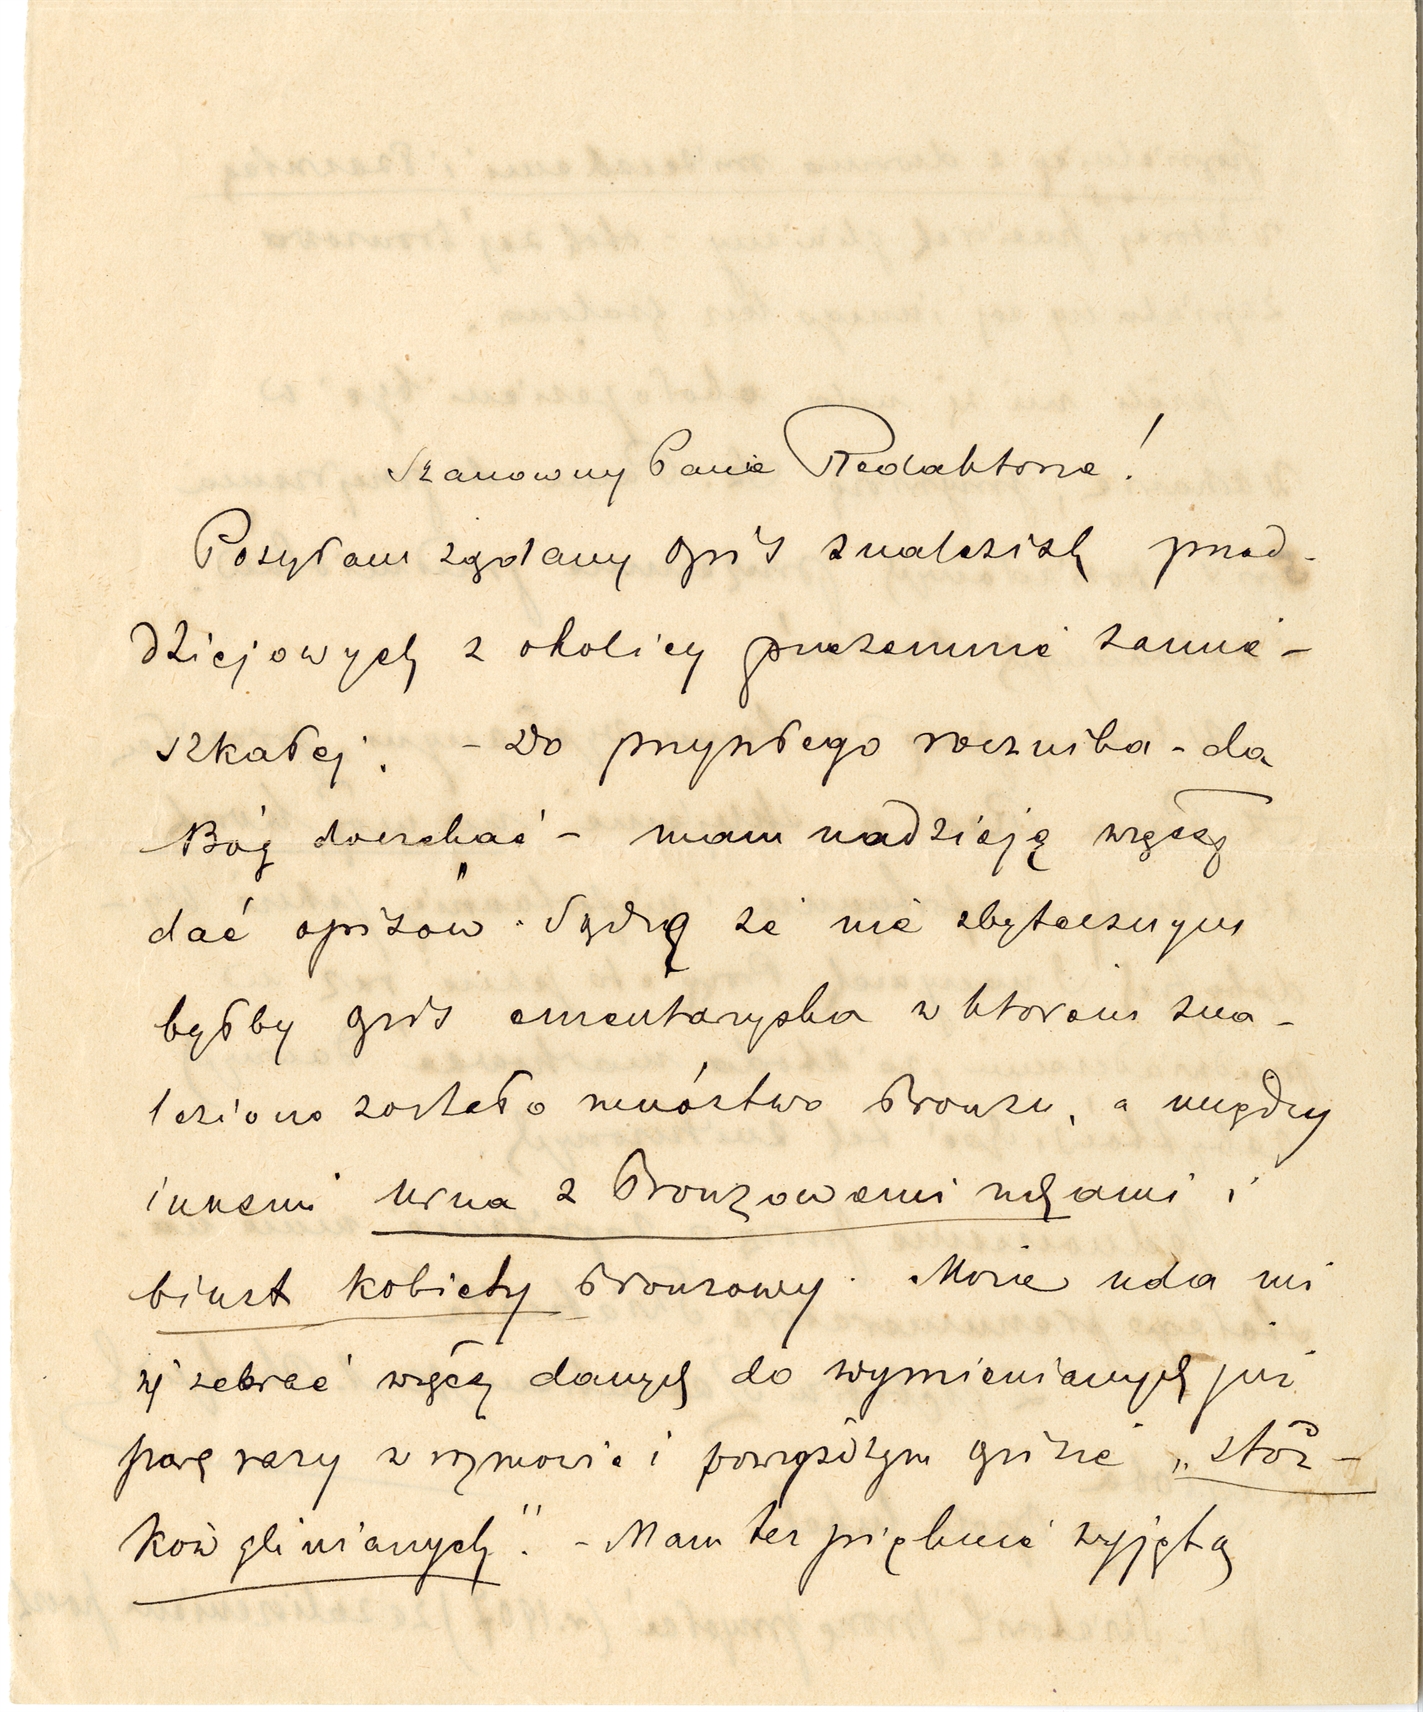 Szanowny Panie Redaktorze!
Posyłam żądany opis znalezisk przed-
dziejowych z okolicy przezemnie zamie-
szkałej. - Do przyszłego rocznika - da
Bóg doczekać - mam nadzieję więcej
dać opisów. Sądzę że nie zbytecznym
byłby opis cmentarzyska w ktorem zna-
leziono zostało mnóstwo bronzu, a między
innemi urna z bronzowemi uszami i
biust kobiety bronzowy. Może uda mi
się zebrać więcej danych do wymienianych już
parę razy w rozmowie i powyższym opisie „stóż-
ków glinianych". - Mam też pięknie wyjętą